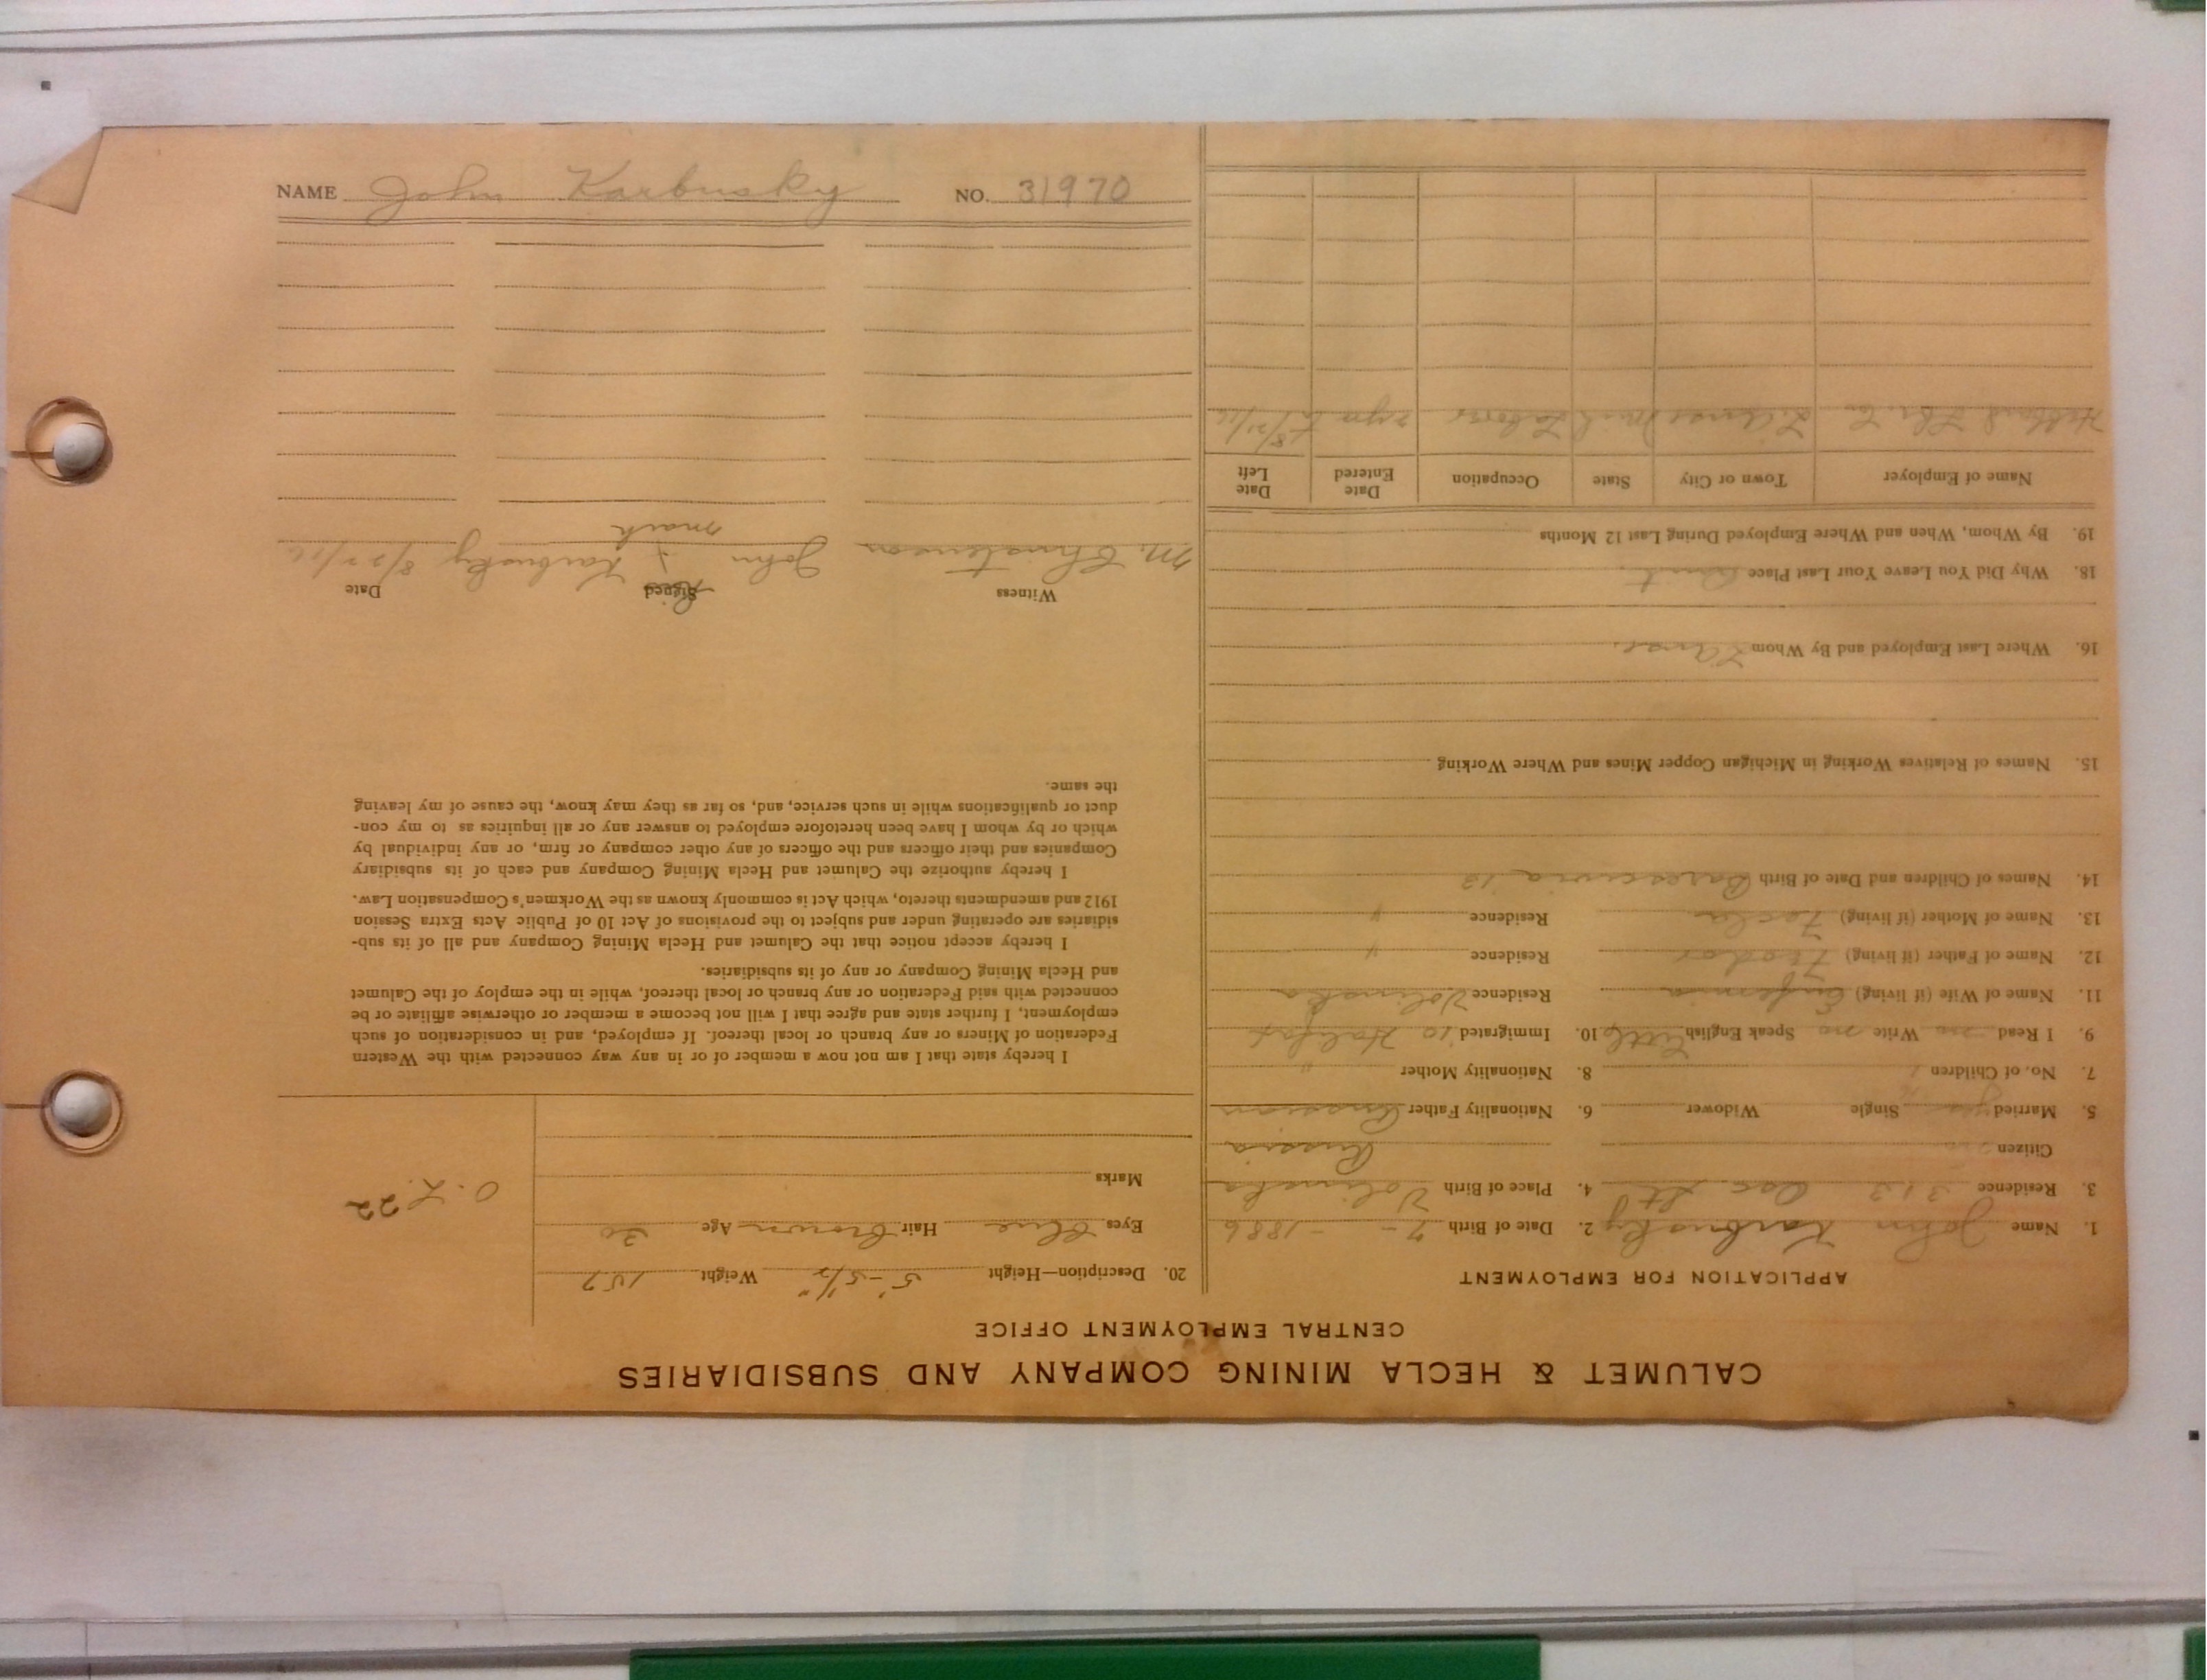 NAME John Karbusky NO. 31970
CALUMET & HECLA MINING COMPANY AND SUBSIDIARIES
CENTRAL EMPLOYMENT OFFICE
APPLICATION FOR EMPLOYMENT
1. Name John Karbusky 2. Date of Birth 7 - - 1886
3. Residence 313 St 4. Place of Birth Volinska
Citizen no Russia
5. Married yes Single Widower 6. Nationality Father Russian
7. No. of Children 1 8. Nationality Mother "
9. I Read no Write no Speak English Little 10. Immigrated '10 Halifax
11. Name of Wife (if living) Residence Volinska
12. Name of Father (if living) Feodor Residence "
13. Name of Mother (if living) Residence "
14. Names of Children and Date of Birth '12
15. Names of Relatives Working in Michigan Copper Mines and Where Working
16. Where Last Employed and By Whom L'Anse.
18. Why Did You Leave Your Last Place Quit.
19. By Whom, When and Where Employed During Last 12 Months
Name of Employer Town or City State Occupation Date Entered Date Left
Hebbard Lbr. Co. L'Anse Mich Laborer 8/21/16
20. Description—Height 5'-5½" Weight 157
Eyes Blue Hair Brown Age 30
Marks
O.L. 22
I hereby state that I am not now a member of or in any way connected with the Western
Federation of Miners or any branch or local thereof. If employed, and in consideration of such
employment, I further state and agree that I will not become a member or otherwise affiliate or be
connected with said Federation or any branch or local thereof, while in the employ of the Calumet
and Hecla Mining Company or any of its subsidiaries.
I hereby accept notice that the Calumet and Hecla Mining Company and all of its sub-
sidiaries are operating under and subject to the provisions of Act 10 of Public Acts Extra Session
1912 and amendments thereto, which Act is commonly known as the Workmen's Compensation Law.
I hereby authorize the Calumet and Hecla Mining Company and each of its subsidiary
Companies and their officers and the officers of any other company or firm, or any individual by
which or by whom I have been heretofore employed to answer any or all inquiries as to my con-
duct or qualifications while in such service, and, so far as they may know, the cause of my leaving
the same.
Witness Signed Date
M. Christenson John x Karbusky 8/22/16
mark